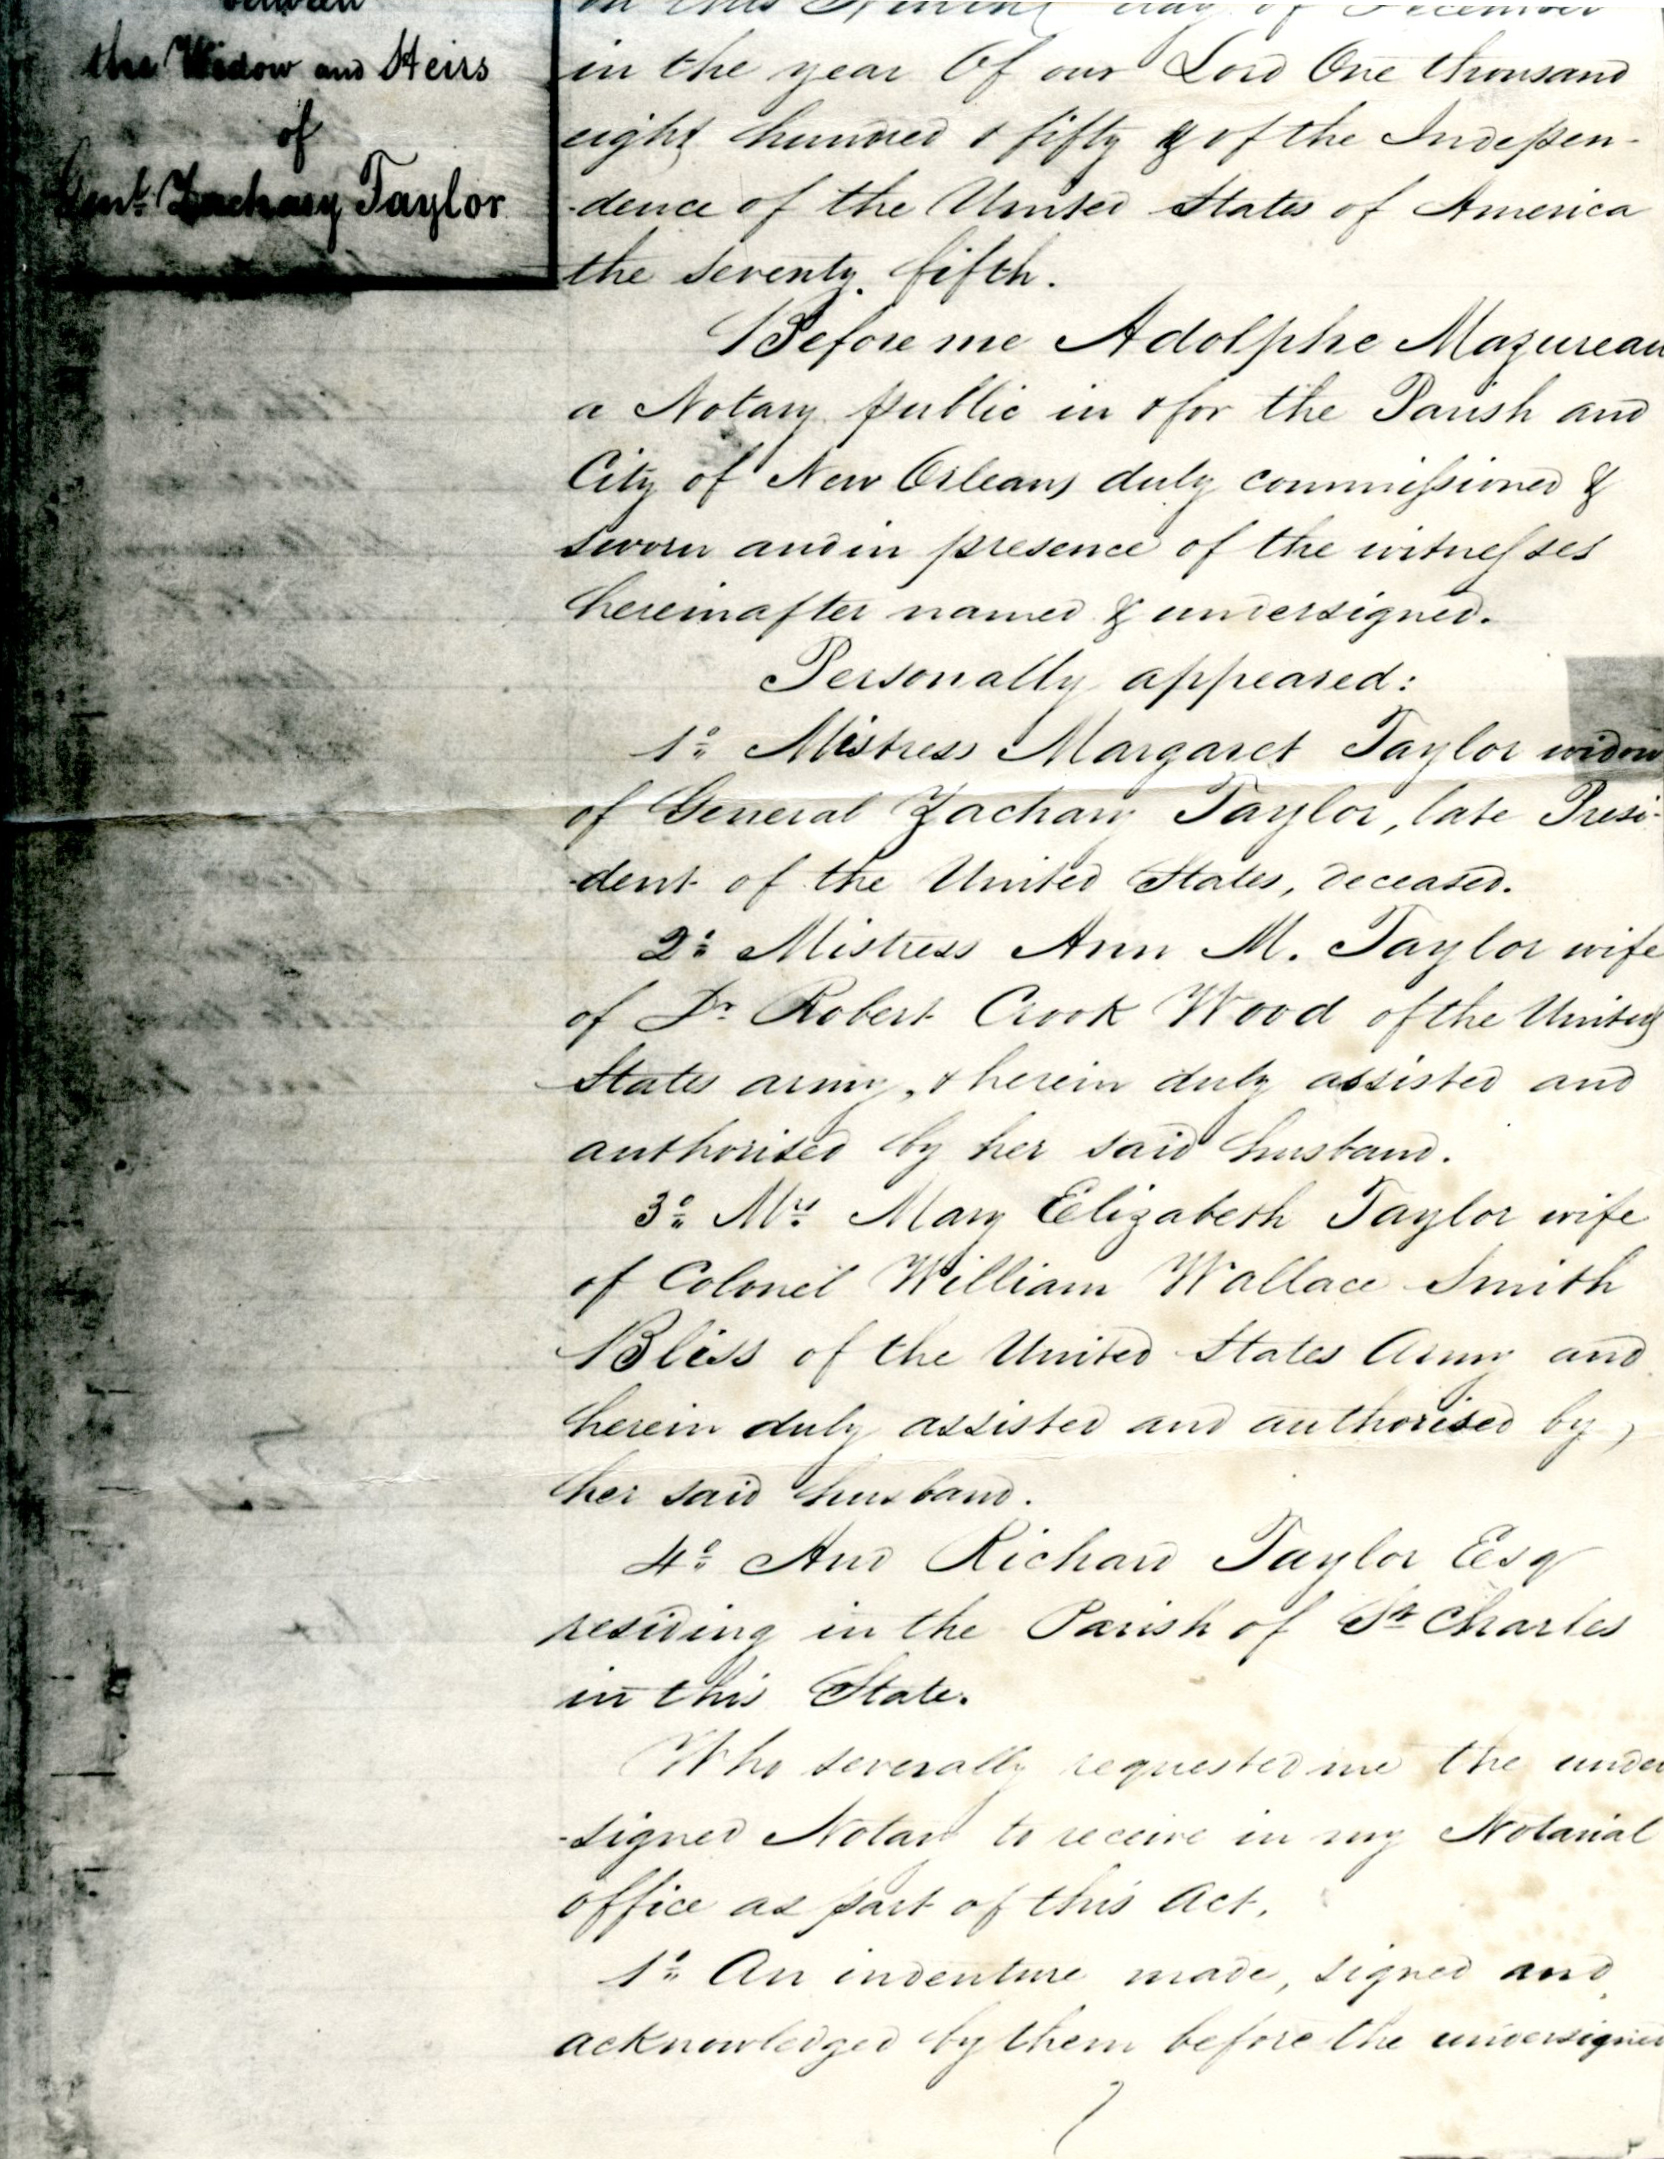 between
the Widow and Heirs
of
Genl. Zachary Taylor
on this day of December
in the year Of our Lord One thousand
eight hundred & fifty & of the Indepen-
-dence of the United States of America
the seventy fifth.
Before me Adolphe Mazureau
a Notary public in & for the Parish and
City of New Orleans duly commissioned &
sworn and in presence of the witnesses
hereinafter named & undersigned.
Personally appeared:
1º Mistress Margaret Taylor widow
of General Zachary Taylor, late Presi-
-dent of the United States, deceased.
2º Mistress Ann M. Taylor wife
of Dr. Robert Crook Wood of the United
States army, & herein duly assisted and
authorised by her said husband.
3º Mrs. Mary Elizabeth Taylor wife
of Colonel William Wallace Smith
Bliss of the United States Army and
herein duly assisted and authorised by
her said husband.
4º And Richard Taylor Esq
residing in the Parish of St. Charles
in this State.
Who severally requested me the under
-signed Notary to receive in my Notarial
office as part of this Act.
1º An indenture made, signed and
acknowledged by them before the undersigned